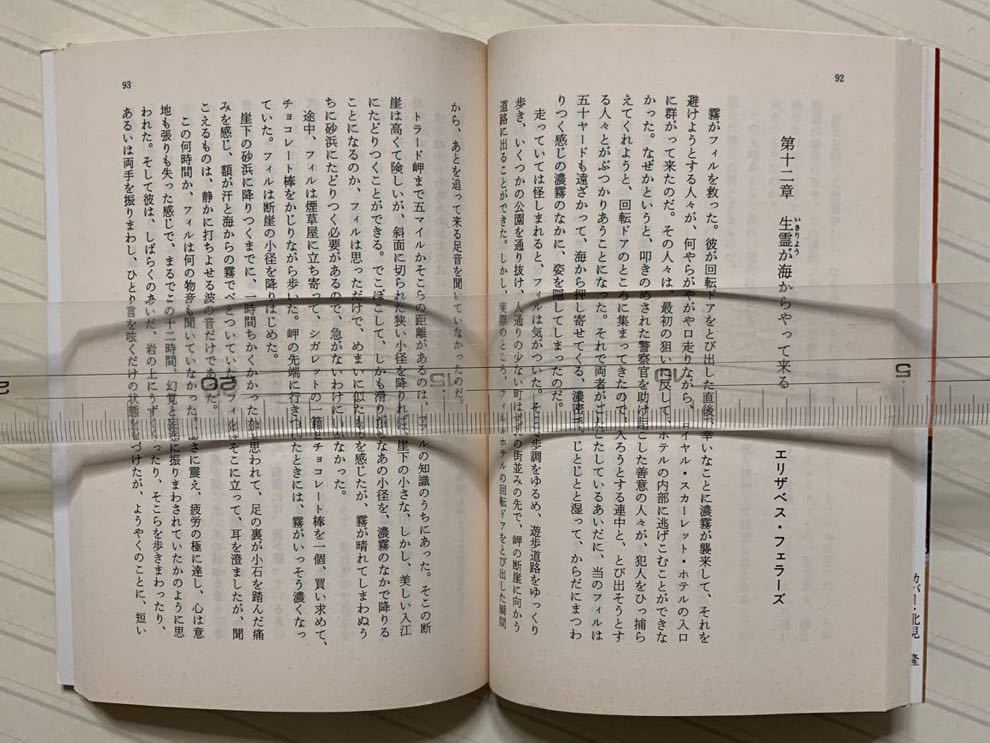 92
第十二章　生霊が海からやって来る
いきりよう
エリザベス・フェラーズ
霧がフィルを救った。彼が回転ドアをとび出した直後、幸いなことに濃霧が襲来して、それを
避けようとする人々が、何やらがやがや口走りながら、ロイヤル・スカーレット・ホテルの入口
に群がって来たのだ。その人々は、最初の狙いに反して、ホテルの内部に逃げこむことができな
かった。なぜかというと、叩きのめされた警察官を助け起こした善意の人々が、犯人をひっ捕ら
えてくれようと、回転ドアのところに集まってきたので、入ろうとする連中と、とび出そうとす
る人々とがぶつかりあうことになった。それで両者がごたごたしているあいだに、当のフィルは
五十ヤードも遠ざかって、海から押し寄せてくる、濃密で、じとじとと湿って、からだにまつわ
りつく感じの濃霧のなかに、姿を隠してしまったのだ。
走っていては怪しまれると、フィルは気がついた。そこで歩調をゆるめ、遊歩道路をゆっくり
歩き、いくつかの公園を通り抜け、人通りの少ない町はずれの街並みの先で、岬の断崖に向かう
道路に出ることができた。しかし、実際のところ、フィルはホテルの回転ドアをとび出した瞬間
93
から、あとを追って来る足音を聞いていなかったのだ。
トラード岬まで五マイルかそこらの距離があるのは、フィルの知識のうちにあった。そこの断
崖は高くて険しいが、斜面に切られた狭い小径を降りれば、崖下の小さな、しかし、美しい入江
にたどりつくことができる。でこぼこして、しかも滑りがちなあの小径を、濃霧のなかで降りる
ことになるのか、フィルは思っただけで、めまいに似たものを感じたが、霧が晴れてしまわぬう
ちに砂浜にたどりつく必要があるので、急がないわけにいかなかった。
途中、フィルは煙草屋に立ち寄って、シガレットの一箱とチョコレート棒を一個、買い求めて、
チョコレート棒をかじりながら歩いた。岬の先端に行きついたときには、霧がいっそう濃くなっ
ていた。フィルは断崖の小径を降りはじめた。
崖下の砂浜に降りつくまでに、一時間ちかくかかったかに思われて、足の裏が小石を踏んだ痛
みを感じ、額が汗と海からの霧でべとついていた。フィルはそこに立って、耳を澄ましたが、聞
こえるものは、静かに打ちよせる波の音だけであった。
この何時間か、フィルは何の物音も聞いていなかった。寒さに震え、疲労の極に達し、心は意
地も張りも失った感じで、まるでこの十二時間、幻覚と
に振りまわされていたかのように思
われた。そして彼は、しばらくのあいだ、岩の上にうず
ったり、そこらを歩きまわったり、
あるいは両手を振りまわし、ひとり言を呟くだけの状態を
つづけたが、ようやくのことに、短い
カバー・北見　隆
5
10
15
20